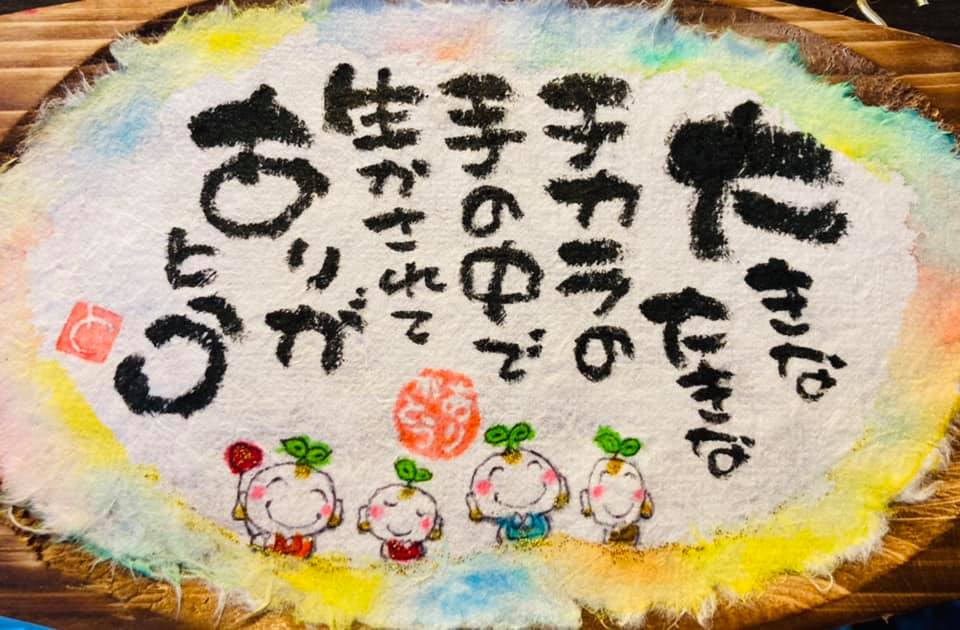 大きな
大きな
チカラの
手の中で
生かされて
ありが
とう
ありがとう
と